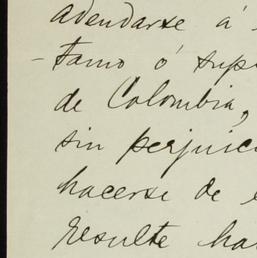 adendarse á
- tamo ó sup
de Colombia,
sin perjuic
hacerse de e
resulte ha